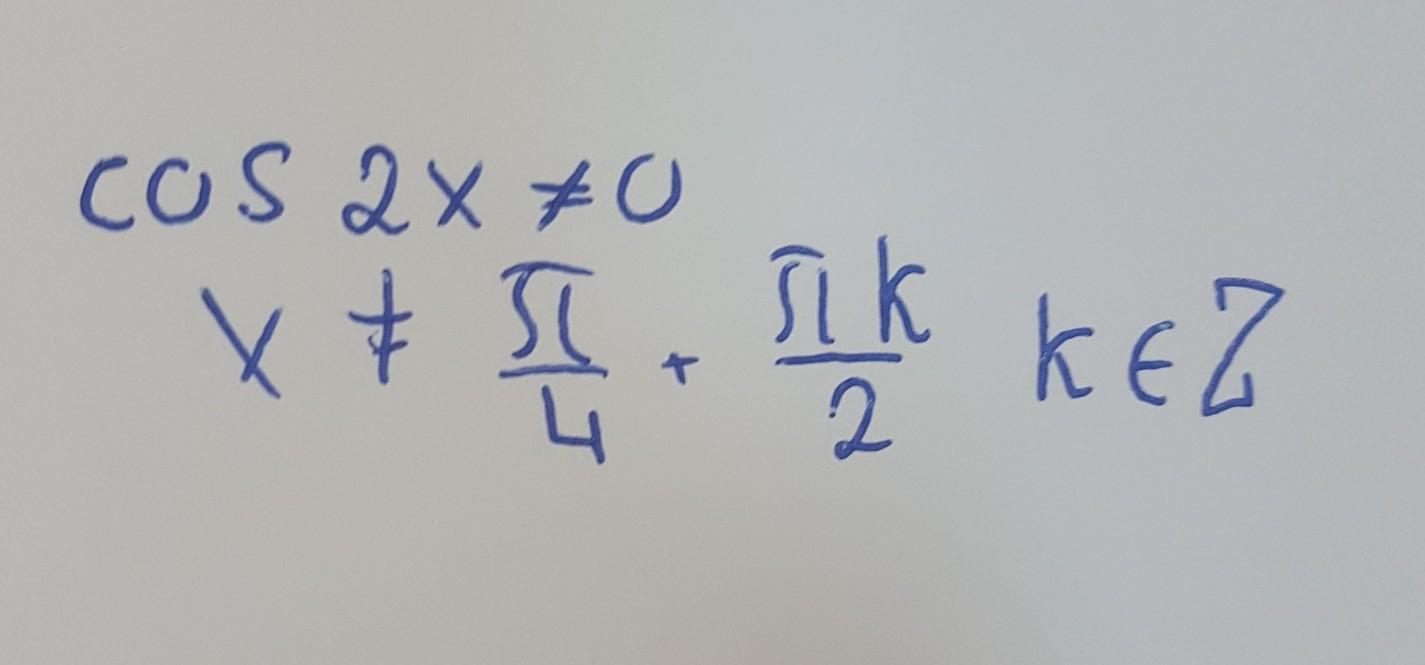 cos 2x ≠ 0
x ≠ π/4 + πk/2 k ∈ Z